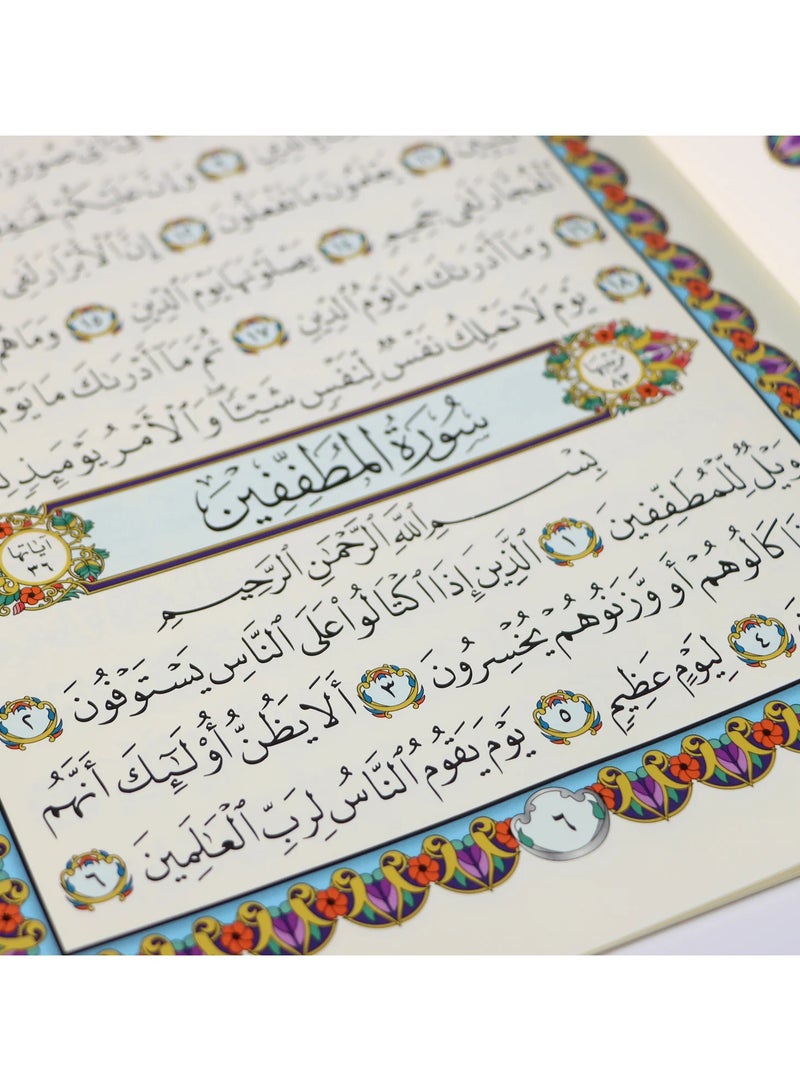 وَإِنَّ عَلَيْكُمْ
يَعْلَمُونَ مَا تَفْعَلُونَ ١٢ إِنَّ ٱلْأَبْرَارَ لَفِى
ٱلْفُجَّارَ لَفِى جَحِيمٍ ١٤ يَصْلَوْنَهَا يَوْمَ ٱلدِّينِ ١٥ وَمَا هُمْ
١٦ وَمَآ أَدْرَىٰكَ مَا يَوْمُ ٱلدِّينِ ١٧ ثُمَّ مَآ أَدْرَىٰكَ مَا يَوْمُ
١٨ يَوْمَ لَا تَمْلِكُ نَفْسٌ لِّنَفْسٍ شَيْـًٔا ۖ وَٱلْأَمْرُ يَوْمَئِذٍ
ترتيبها ٨٣
سُورَةُ المُطَفِّفِين
آياتها ٣٦
بِسْمِ ٱللَّهِ ٱلرَّحْمَٰنِ ٱلرَّحِيمِ
وَيْلٌ لِّلْمُطَفِّفِينَ ١ ٱلَّذِينَ إِذَا ٱكْتَالُوا۟ عَلَى ٱلنَّاسِ يَسْتَوْفُونَ ٢
كَالُوهُمْ أَو وَّزَنُوهُمْ يُخْسِرُونَ ٣ أَلَا يَظُنُّ أُو۟لَٰٓئِكَ أَنَّهُم
٤ لِيَوْمٍ عَظِيمٍ ٥ يَوْمَ يَقُومُ ٱلنَّاسُ لِرَبِّ ٱلْعَٰلَمِينَ ٦
٦